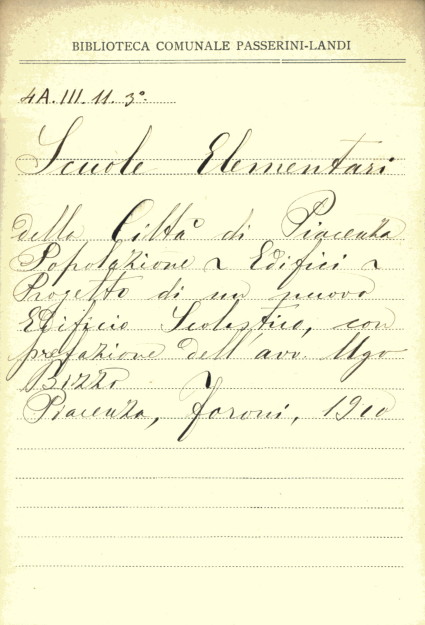 BIBLIOTECA COMUNALE PASSERINI-LANDI
4A.III.11.3°
Scuole Elementari
della Città di Piacenza
Popolazione ~ Edifici ~
Progetto di un nuovo
Edificio Scolastico, con
prefazione dell'avv. Ugo
Bizzo
Piacenza, Foroni, 1910